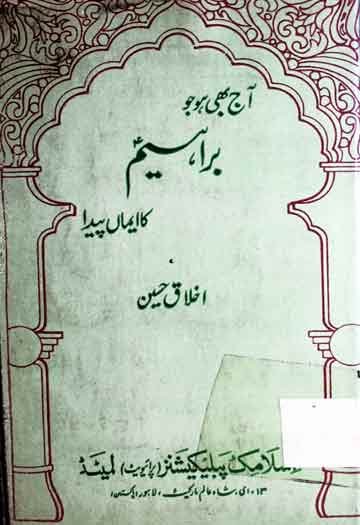 آج بھی ہو جو
براہیمؑ
کا ایماں پیدا
اخلاق حسین
اسلامک پبلیکیشنز (پرائیویٹ) لمیٹڈ
۱۳-ای، شاہ عالم مارکیٹ، لاہور (پاکستان)